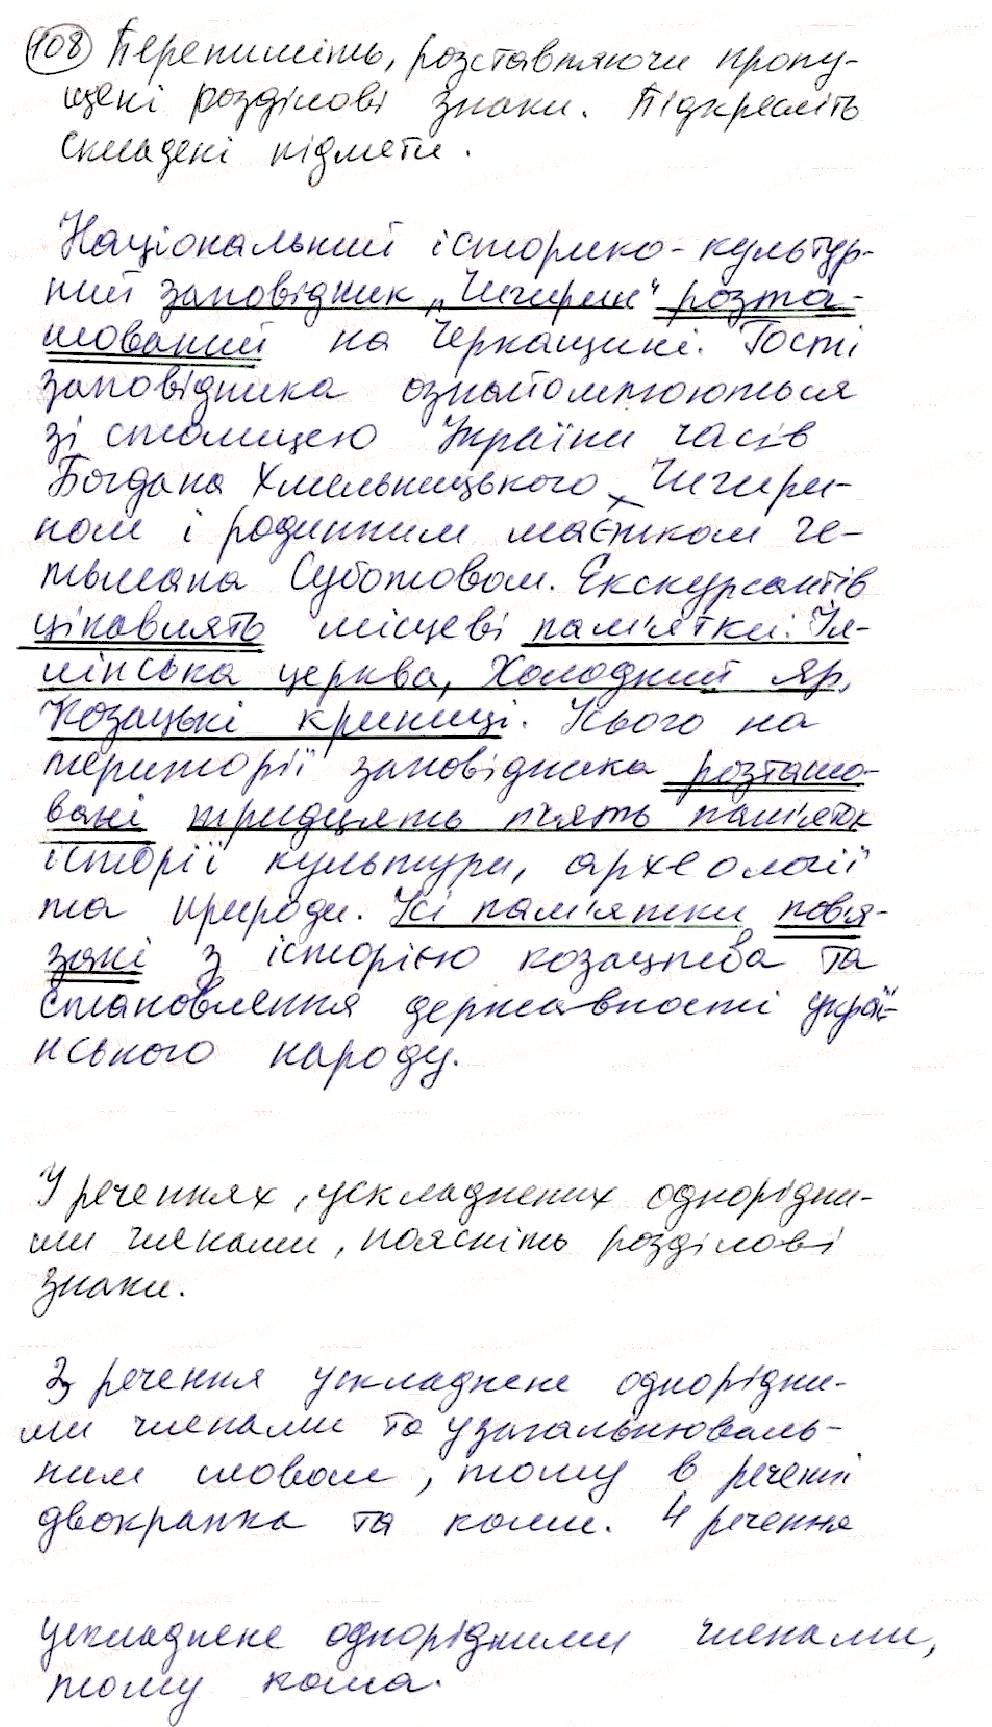 108 Перепишіть, розставляючи пропу-
щені розділові знаки. Підкресліть
складені підмети.
Національний історико-культур-
ний заповідник „Чигирин" розта-
шований на Черкащині. Гості
заповідника ознайомлюються
зі столицею України часів
Богдана Хмельницького, Чигири-
ном і родинним маєтком ге-
тьмана Суботовом. Екскурсантів
цікавлять місцеві пам'ятки: Іл-
лінська церква, Холодний яр,
Козацькі криниці. Усього на
території заповідника розташо-
вані тридцять п'ять пам'яток
історії культури, археології
та природи. Усі пам'ятки пов'я-
зані з історією козацтва та
становлення державності украї-
нського народу.
У реченнях, ускладнених однорідни-
ми членами, поясніть розділові
знаки.
3 речення ускладнене однорідни-
ми членами та узагальнюваль-
ним словом, тому в реченні
двокрапка та коми. 4 речення
ускладнене однорідними членами,
тому кома.